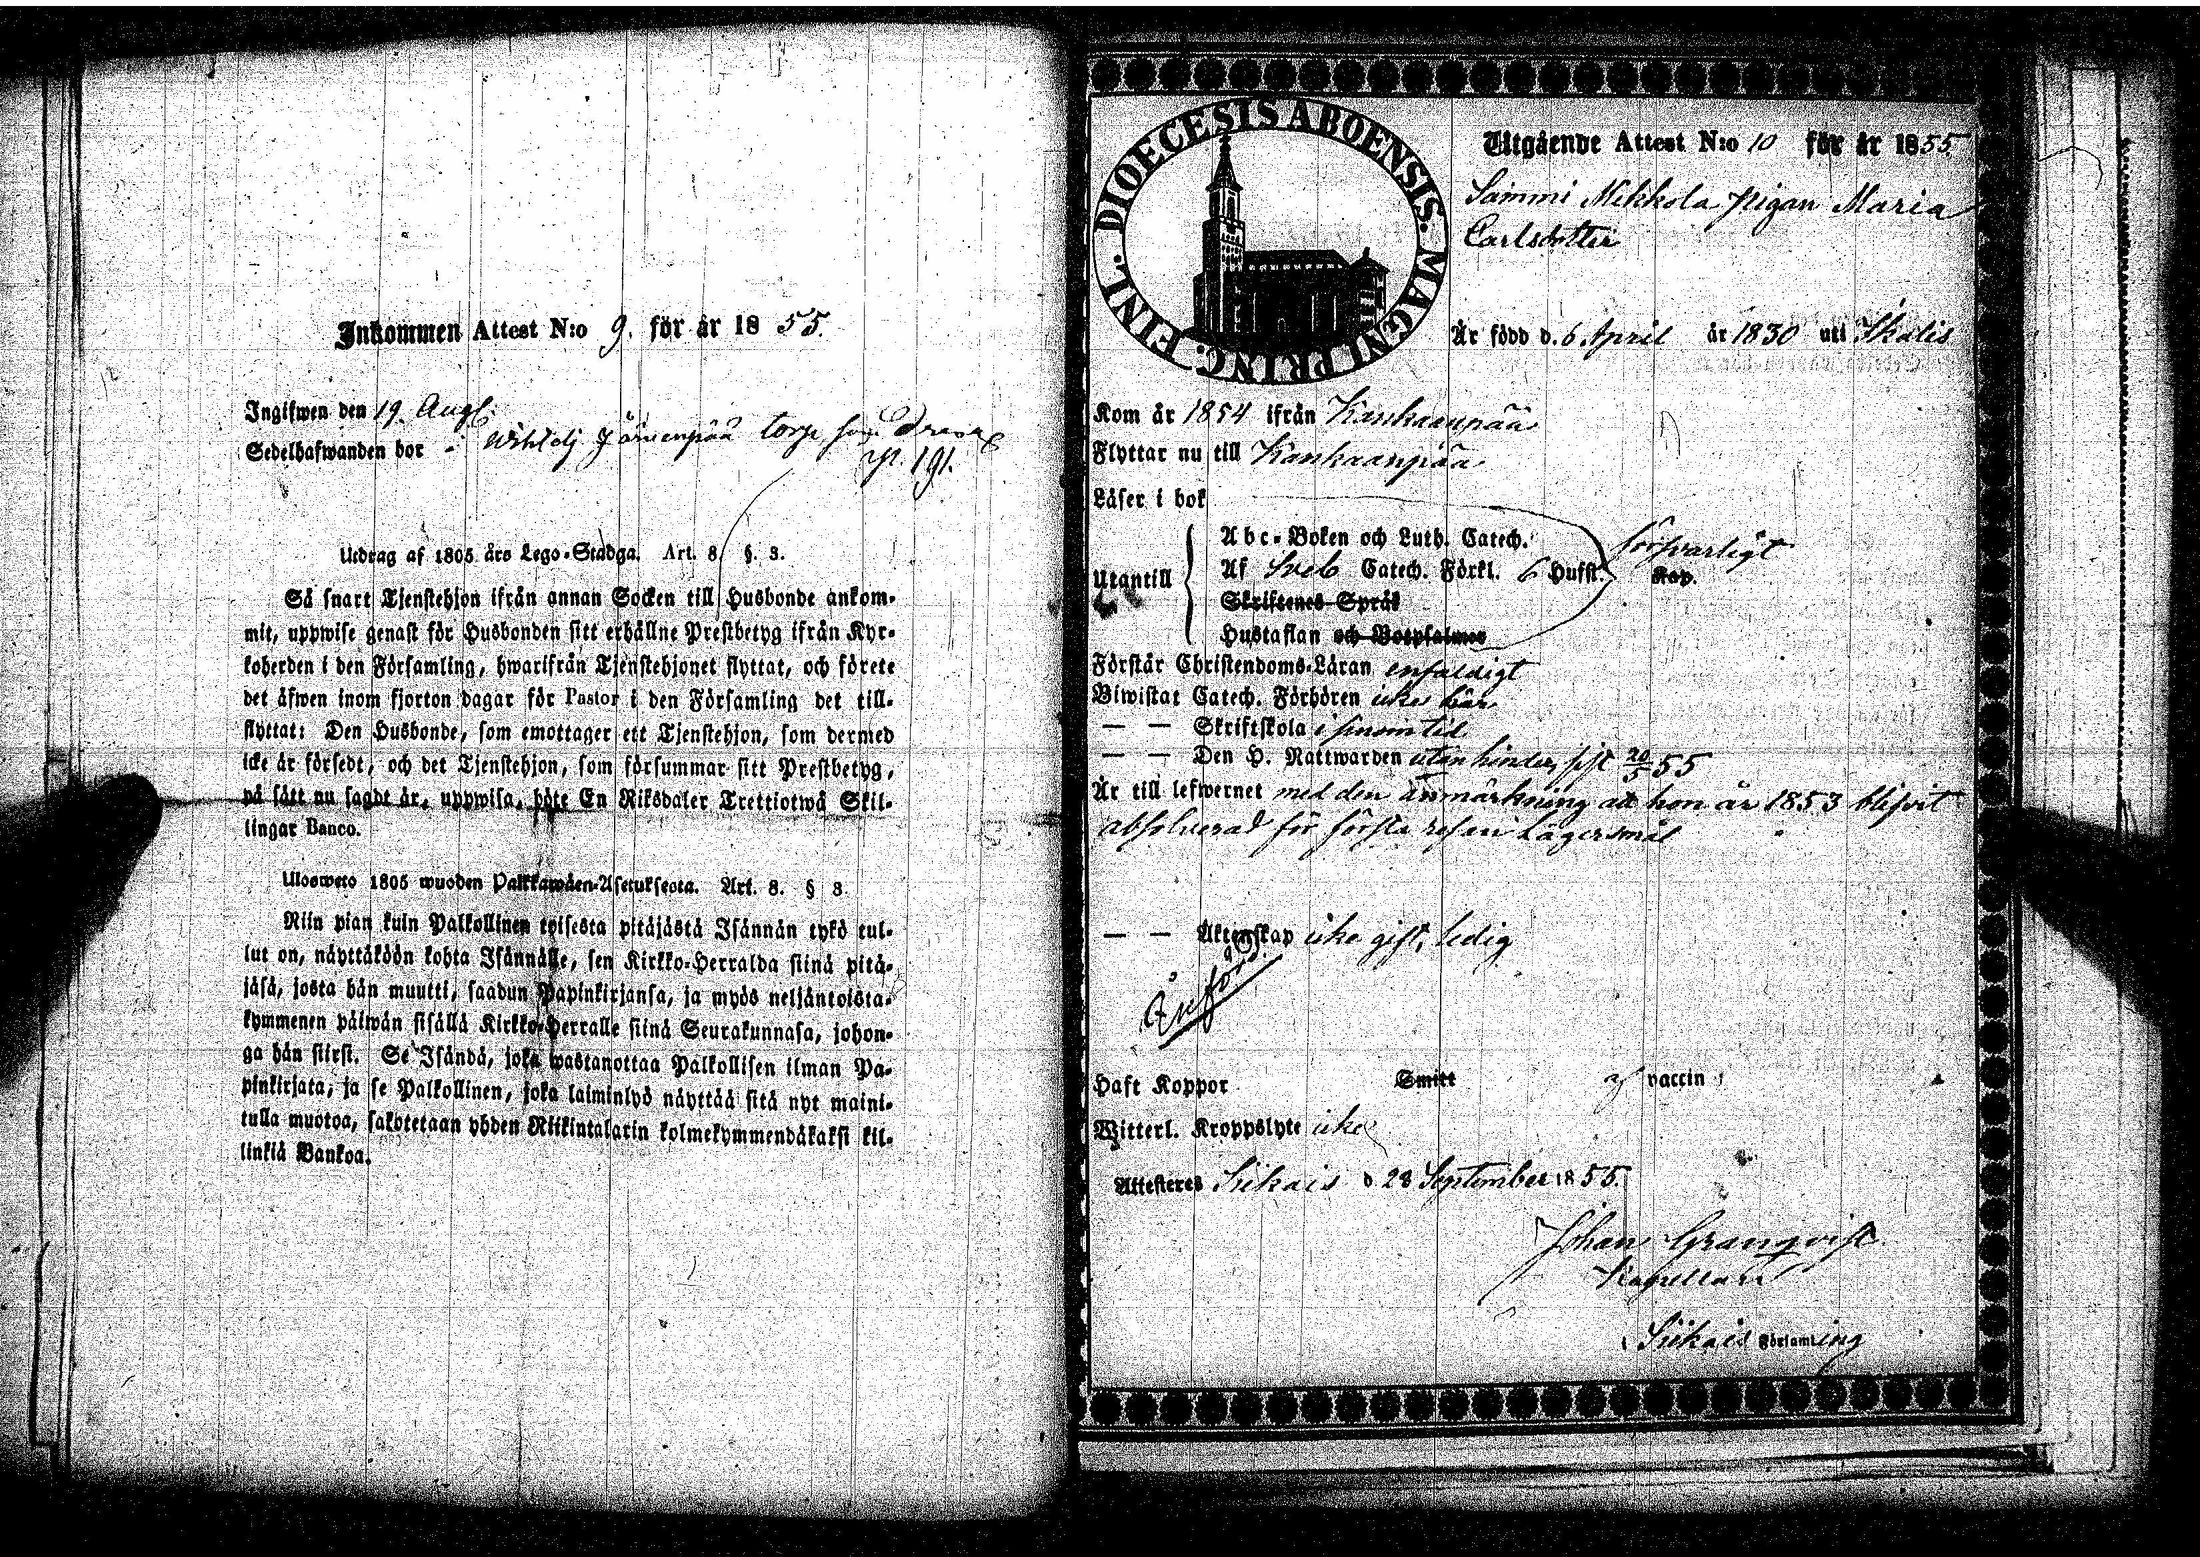 Inkommen Attest N:o 9. för år 1855.
Ingifwen den 19. Aug.
Sedelhafwanden bor Järvenpää torp som
p. 191.
Utdrag af 1805 års Lego-Stadga. Art. 8. §. 3.
Så snart Tjenstehjon ifrån annan Socken till Husbonde ankom-
mit, uppwise genast för Husbonden sitt erhållne Prestbetyg ifrån Kyr-
koherden i den Församling, hwarifrån Tjenstehjonet flyttat, och förete
det äfwen inom fjorton dagar för Pastor i den Församling det till-
flyttat: Den Husbonde, som emottager ett Tjenstehjon, som dermed
icke är försedt, och det Tjenstehjon, som försummar sitt Prestbetyg,
på sätt nu sagdt är, uppwisa, böte En Riksdaler Trettiotwå Skil-
lingar Banco.
Ulosweto 1805 wuoden Palkkawäen-Asetuksesta. Art. 8. § 3.
Niin pian kuin Palkollinen toisesta pitäjästä Isännän tykö tul-
lut on, näyttäköön kohta Isännälle, sen Kirkko-Herralda siinä pitä-
jäsä, josta hän muutti, saadun Papinkirjansa, ja myös neljäntoista-
kymmenen päiwän sisällä Kirkko-Herralle siinä Seurakunnasa, johon-
ga hän siirsi. Se Isändä, joka wastanottaa Palkollisen ilman Pa-
pinkirjata, ja se Palkollinen, joka laiminlyö näyttää sitä nyt maini-
tulla muotoa, sakotetaan yhden Riikintalarin kolmekymmendäkaksi kil-
linkiä Bankoa.
DIOECESIS ABOENSIS. MAGNI PRINC. FINL.
Utgående Attest N:o 10 för år 1855.
Sammi Mikkola pigan Maria
Carlsdotter
Är född d. 6 April år 1830 uti Ikalis
Kom år 1854 ifrån Kankaanpää
Flyttar nu till Kankaanpää
Läser i bok
Utantill
Abc-Boken och Luth. Catech.
försvarligt
Af Sveb Catech. Förkl. 6 Hufst. Kap.
Skriftenes Språk
Hustaflan och Botpsalmer
Förstår Christendoms-Läran enfaldigt
Biwistat Catech. Förhören icke här
— — Skriftskola i sinom tid
— — Den H. Nattwarden utan hinder, sist 20/5 55
Är till lefwernet med den anmärkning att hon år 1853 blifvit
absolverad för första resan Lägersmål
— — Äktenskap icke gift, ledig
Haft Koppor Smitt af vaccin
Witterl. Kroppslyte icke
Attesteres Siikais d. 28 September 1855.
Johan Granqvist
Kapellan
i Siikais Församling